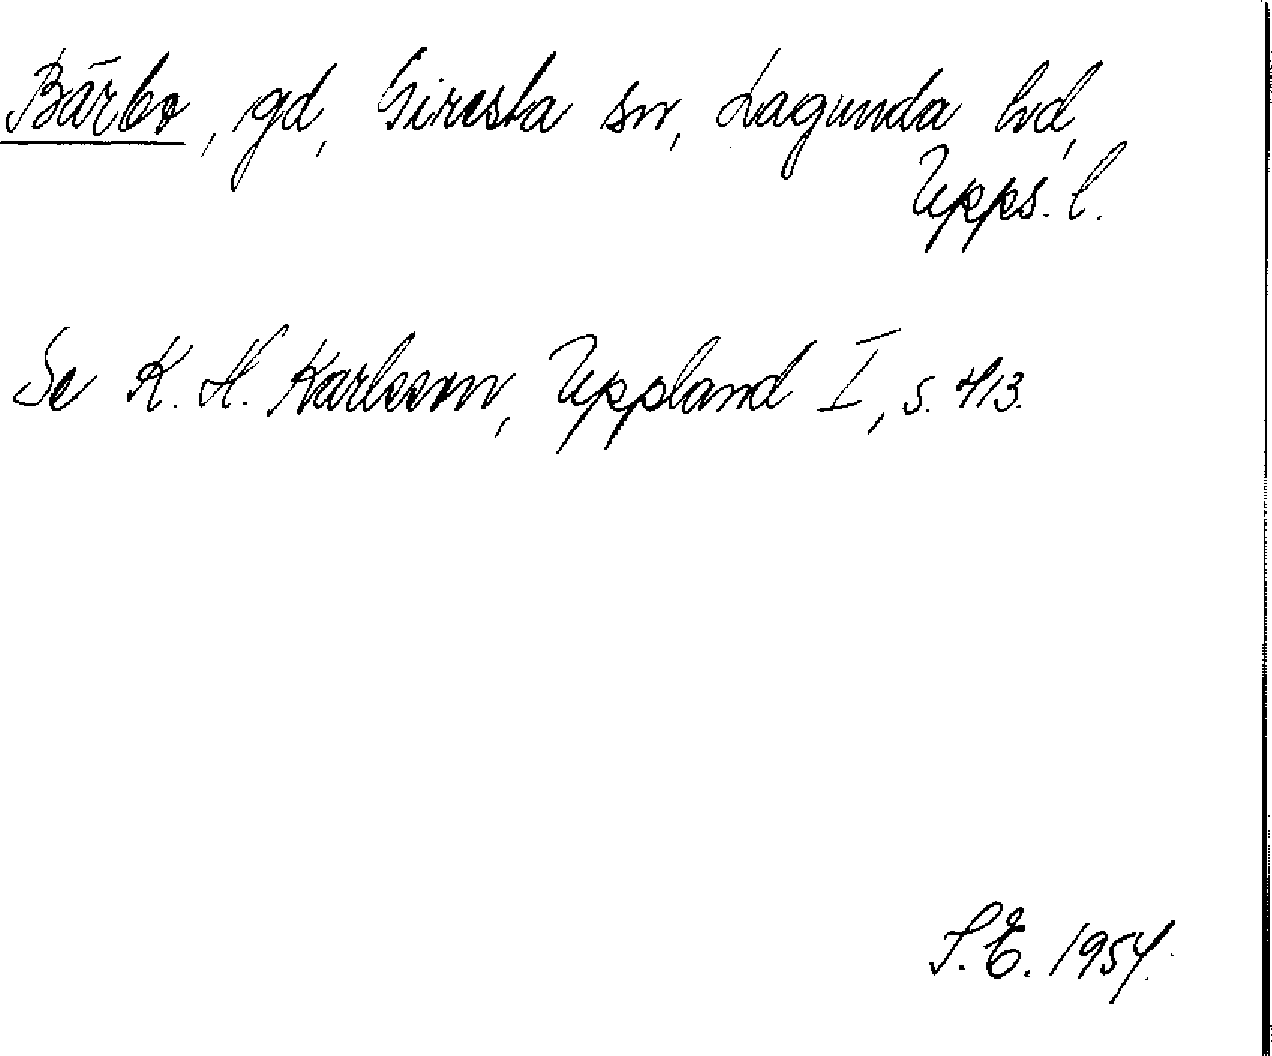 Bärbo, gd, Giresta sn, Lagunda hd,
Upps. l.
Se K. H. Karlsson, Uppland I, s. 413.
S. E. 1954.